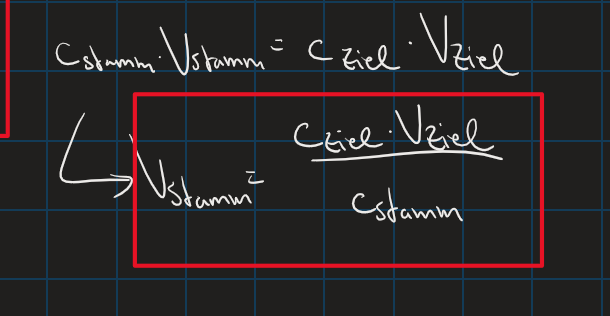 c_Stamm · V_Stamm = c_Ziel · V_Ziel
V_Stamm = 
c_Ziel · V_Ziel
c_Stamm